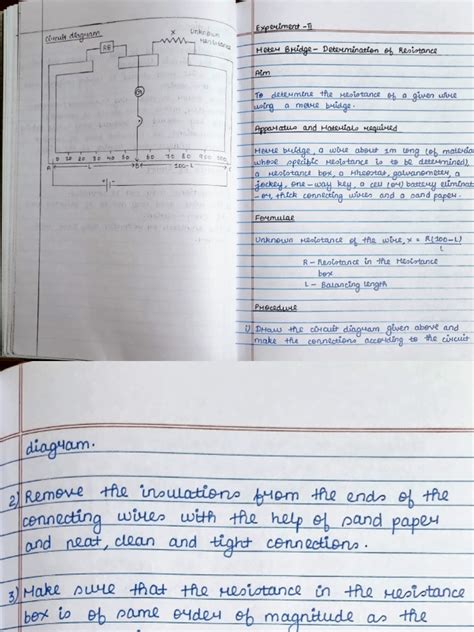 Circuit diagram
RB
X
Unknown
Resistance
G
0 10 20 30 40 50 60 70 80 90 100
A
L
100-L
C
Experiment -II
Meter Bridge - Determination of Resistance
Aim
To determine the resistance of a given wire
using a metre bridge.
Apparatus and Materials required
Metre bridge, a wire about 1m long (of material
whose specific resistance is to be determined),
a resistance box, a rheostat, galvanometer, a
jockey, one-way key, a cell (or) battery eliminat
-or, thick connecting wires and a sand paper.
Formulae
Unknown resistance of the wire, x = R(100-L)
L
R - Resistance in the resistance
box
L - Balancing length
Procedure
1) Draw the circuit diagram given above and
make the connections according to the circuit
diagram.
2) Remove the insulations from the ends of the
connecting wires with the help of sand paper
and neat, clean and tight connections.
3) Make sure that the resistance in the resistance
box is of same order of magnitude as the